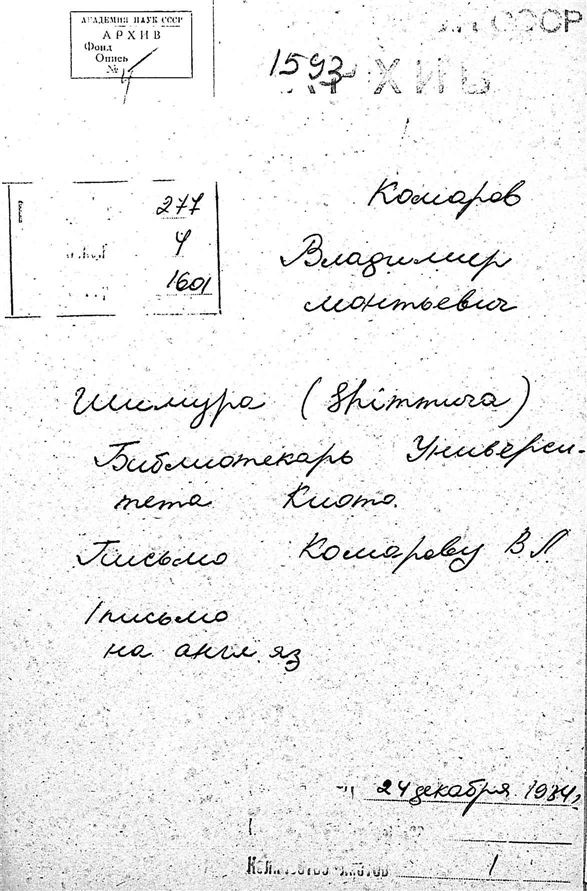 АКАДЕМИЯ НАУК СССР
АРХИВ
Фонд
Опись
№ 4
СССР
1593
АРХИВ
277
4
1601
Комаров
Владимир
Леонтьевич
Шимура (Shimmura)
Библиотекарь Универси-
тета Киото.
Письмо Комарову В Л
1 письмо
на англ. яз
24 декабря 1934,
Количество листов 1